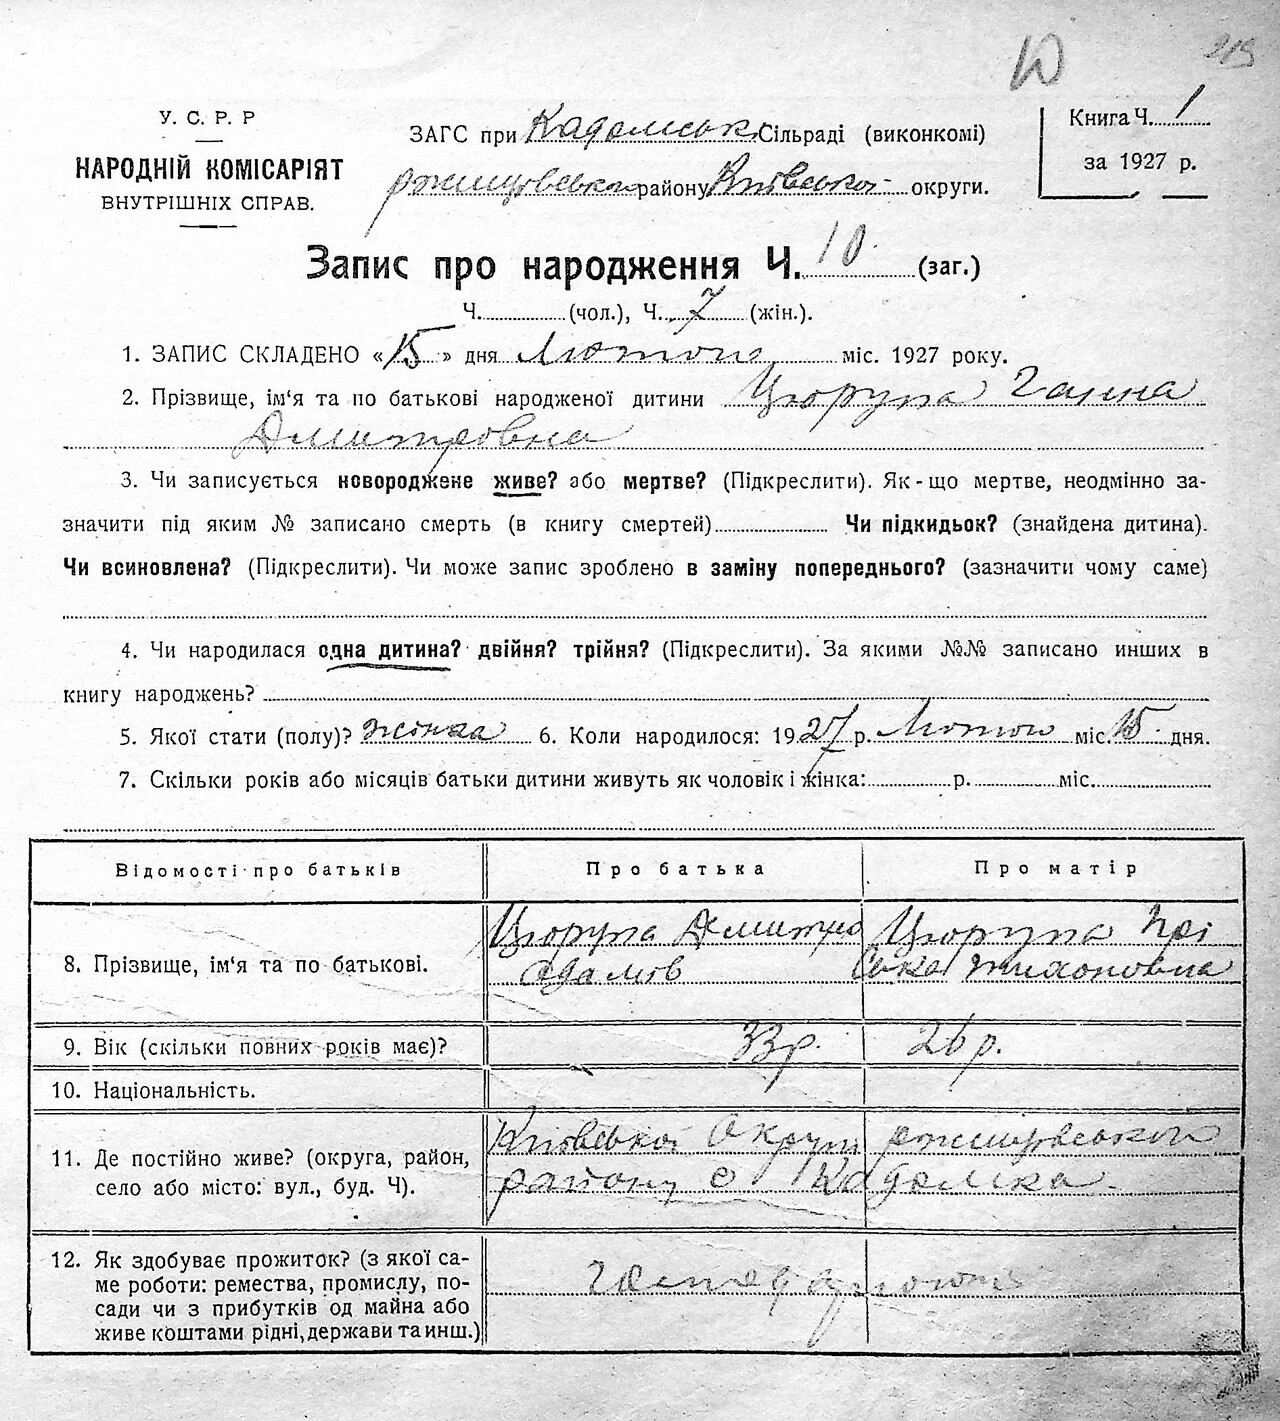 Ю 219
У. С. Р. Р
НАРОДНІЙ КОМІСАРІЯТ
ВНУТРІШНІХ СПРАВ.
ЗАГС при Кадомській Сільраді (виконкомі)
ржищівського району Київської округи.
Книга Ч. 1
за 1927 р.
Запис про народження Ч. 10 (заг.)
Ч. (чол.), Ч. 7 (жін.).
1. ЗАПИС СКЛАДЕНО «15» дня Лютого міс. 1927 року.
2. Прізвище, ім'я та по батькові народженої дитини Цюрупа Ганна
Дмитровна
3. Чи записується новороджене живе? або мертве? (Підкреслити). Як-що мертве, неодмінно за-
значити під яким № записано смерть (в книгу смертей) Чи підкидьок? (знайдена дитина).
Чи всиновлена? (Підкреслити). Чи може запис зроблено в заміну попереднього? (зазначити чому саме)
4. Чи народилася одна дитина? двійня? трійня? (Підкреслити). За якими №№ записано инших в
книгу народжень?
5. Якої стати (полу)? жінка 6. Коли народилося: 1927 р. Лютого міс. 15 дня.
7. Скільки років або місяців батьки дитини живуть як чоловік і жінка: р. міс.
Відомості про батьків Про батька Про матір
8. Прізвище, ім'я та по батькові. Цюрупа Дмитро Цюрупа Прі
адамів ська тихоновна
9. Вік (скільки повних років має)? 33 р. 26 р.
10. Національність.
11. Де постійно живе? (округа, район, Київської Округи ржищівського
село або місто: вул., буд. Ч). району с Кадомка.
12. Як здобуває прожиток? (з якої са-
ме роботи: ремества, промислу, по-
сади чи з прибутків од майна або
живе коштами рідні, держави та инш.)